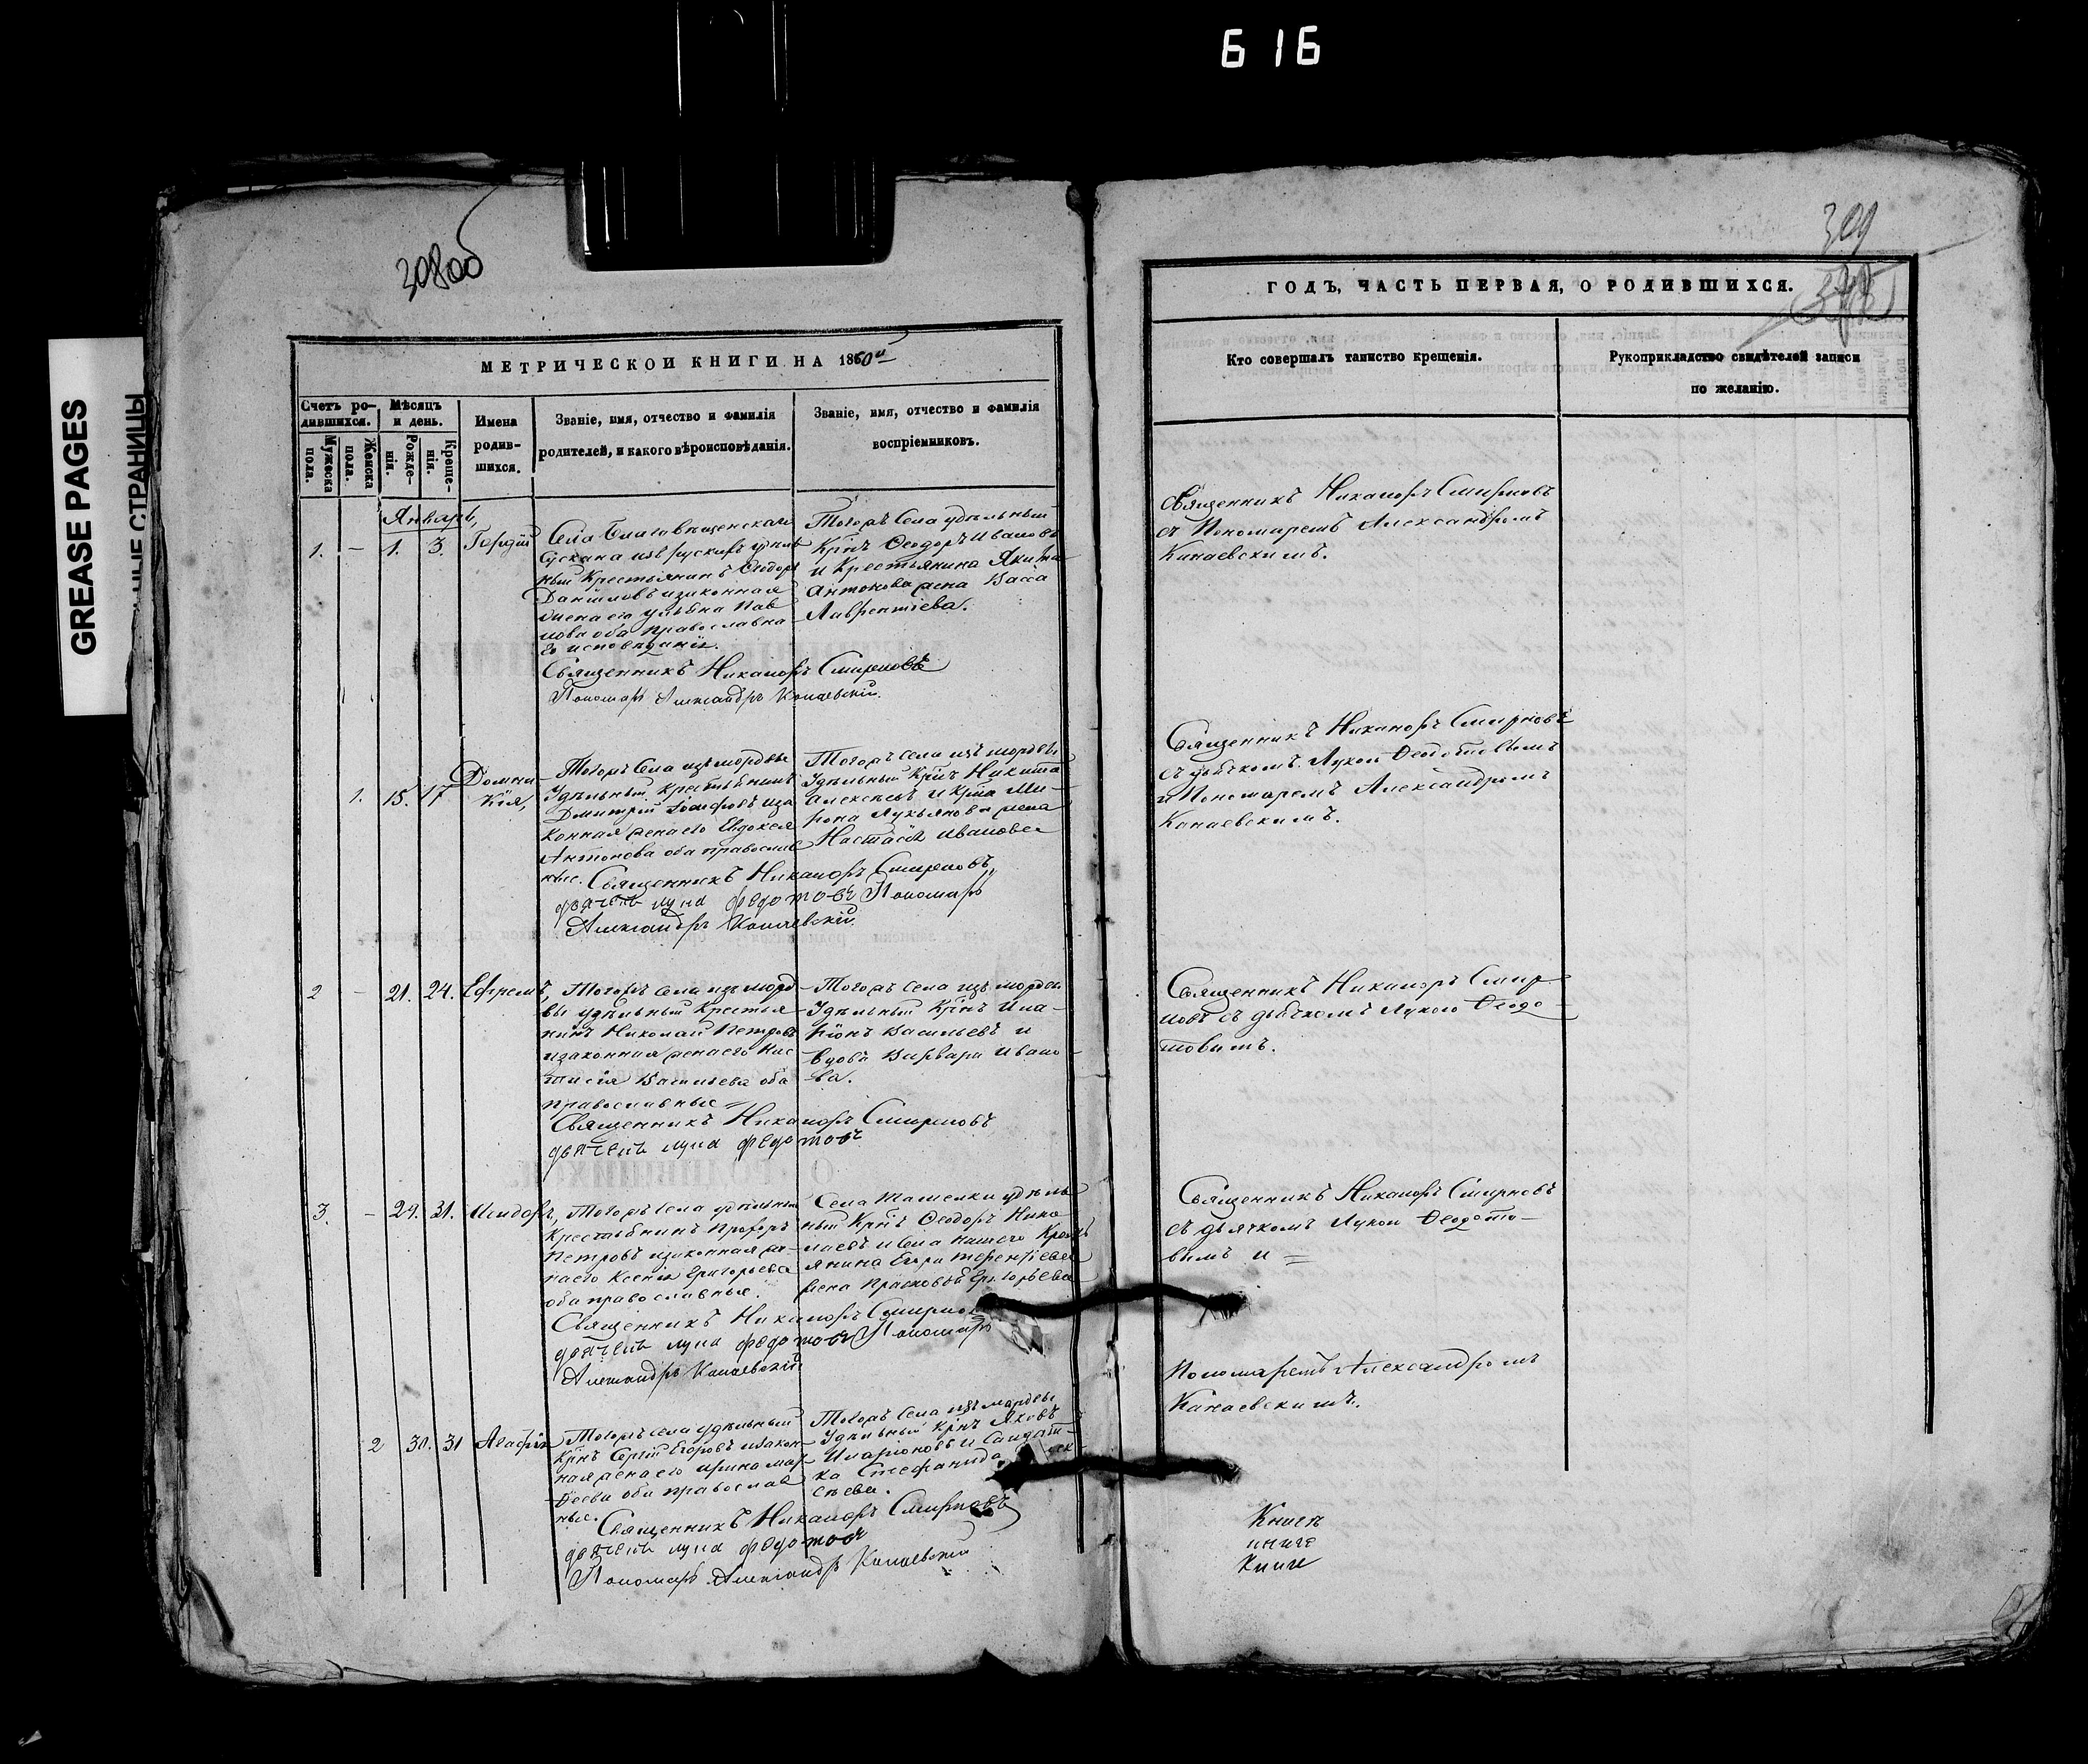 616
GREASE PAGES
ЫЕ СТРАНИЦЫ
308об
МЕТРИЧЕСКОЙ КНИГИ НА 1860й
Счетъ ро-
дившихся.
Мѣсяцъ
и день.
Мужеска
пола.
Женска
пола.
Рожде-
нія.
Креще-
нія.
Имена
родив-
шихся.
Званіе, имя, отчество и фамилія
родителей, и какого вѣроисповѣданія.
Званіе, имя, отчество и фамилія
воспріемниковъ.
Январь,
1. - 1. 3. Гордій
Села Благовещенскаго
Сускана изъ рускихъ удѣль
ный Крестьянинъ Ѳеодоръ
Даниловъ изаконная
жена его Ульяна Пав
лова оба православна
го исповеданія.
Священникъ Никаноръ Смирновъ
Пономарь Александръ Канаевскій.
Тогожъ Села удѣльный
Крнъ Ѳеодоръ Ивановъ
и Крестьянина Якима
Антонова жена Васса
Лаврентіева.
1. 15. 17 Домни-
кія,
Тогожъ Села изъ мордвы
Удѣльный крестьянинъ
Дмитрій Іосифовъ иза
конная жена его Евдокея
Антонова оба православ
ные. Священникъ Никаноръ Смирновъ,
дьячекъ лука федотовъ Пономарь
Александръ Канаевскій
Тогожъ Села изъ мордвы
Удѣльный Крнъ Никита
Алексеевъ и Крна Ми-
рона Лукьянова жена
Настасія Иванова
2 - 21. 24. Ефремъ,
Тогожъ Села изъ морд
вы удѣльный Крестья
нинъ Николай Петровъ
изаконная жена его Нас
тасія Васильева оба
православные =
Священникъ Никаноръ Смирновъ
дьячекъ лука федотовъ
Тогожъ Села изъ мордвы
Удѣльный Крнъ Ила-
ріонъ Васильевъ и
вдова Варвара Ивано-
ва.
3. - 29. 31. Исидоръ,
Тогожъ Села удѣльный
Крестьянинъ Прохоръ
Петровъ изаконная же-
на его Ксенія Григорьева
оба православные.
Священникъ Никаноръ Смирнов
дьячекъ лука федотовъ Пономарь
Александръ Канаевскій
Села Ташелки удѣль
ный Крнъ Ѳеодоръ Нико
лаевъ и Села нашего Кресть
янина Егора Терентіева
жена Прасковья Григорьева
2 30. 31 Агафія
Тогожъ Села удѣльный
Крнъ Сергій Егоровъ изакон
ная жена его Ирина Мат
ѳеева оба православ
ные.
Священникъ Никаноръ Смирновъ
дьячекъ лука федотовъ
Пономарь Александръ Канаевскій
Тогожъ Села изъ мордвы
Удѣльный Крнъ Яковъ
Иларіоновъ и Солдат-
ка Стефанида
сѣева.
309
ГОДЪ, ЧАСТЬ ПЕРВАЯ, О РОДИВШИХСЯ.
Кто совершалъ таинство крещенія.
Рукоприкладство свидѣтелей записи
по желанію.
Священникъ Никаноръ Смирновъ
съ Пономаремъ Александромъ
Канаевскимъ.
Священникъ Никаноръ Смирновъ
съ дьячкомъ Лукой Ѳеодотовымъ
и Пономаремъ Александромъ
Канаевскимъ.
Священникъ Никаноръ Смир-
новъ съ дьячкомъ Лукою Ѳеодо-
товымъ.
Священникъ Никаноръ Смирновъ
съ дьячкомъ Лукой Ѳеодото-
вымъ и =
Пономаремъ Александромъ
Канаевскимъ.
книге
Книге